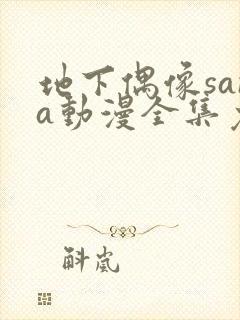 地下偶像sa
a动漫全集
斛岚